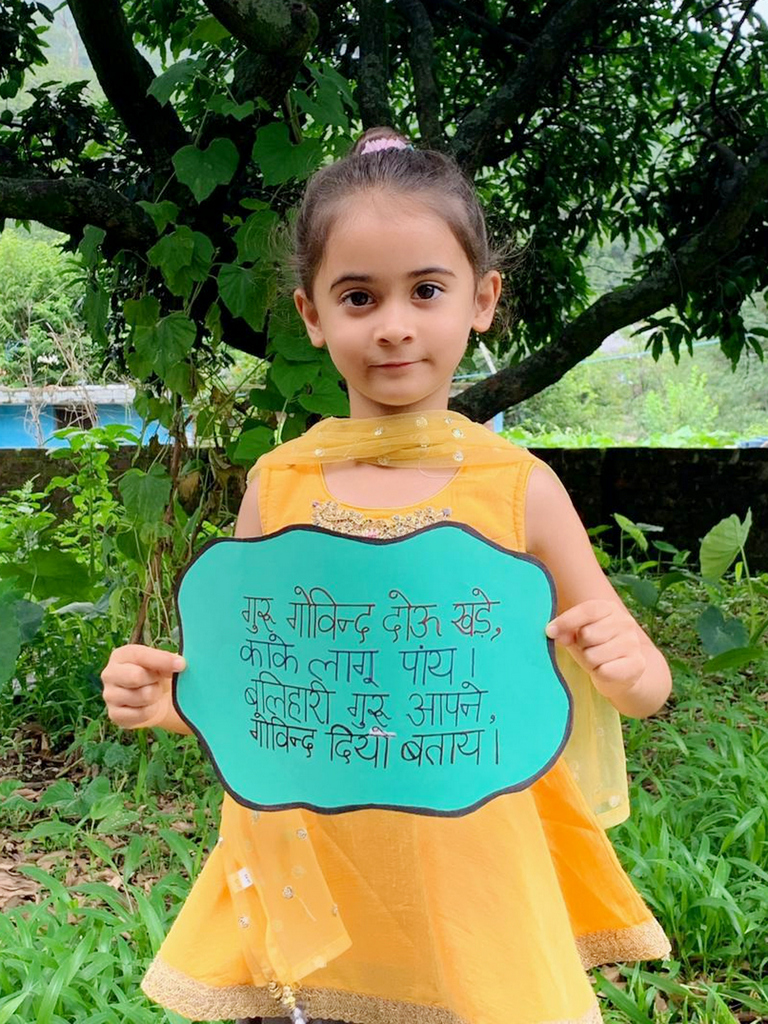 गुरू गोविन्द दोऊ खड़े,
काके लागू पांय।
बलिहारी गुरू आपने,
गोविन्द दियो बताय।